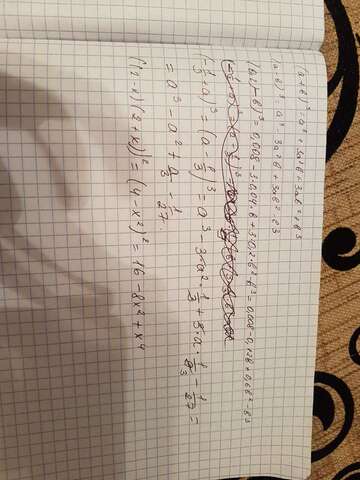 (a+b)³ = a³ + 3a²b + 3ab² + b³
(a-b)³ = a³ - 3a²b + 3ab² - b³
(0,2-b)³ = 0,008 - 3·0,04·b + 3·0,2·b² - b³ = 0,008 - 0,12b + 0,6b² - b³
(-1/3+a)³ = (a-1/3)³ = a³ - 3·a²·1/3 + 3·a·1/9 - 1/27 =
= a³ - a² + a/3 - 1/27
((2-x)(2+x))² = (4-x²)² = 16 - 8x² + x⁴